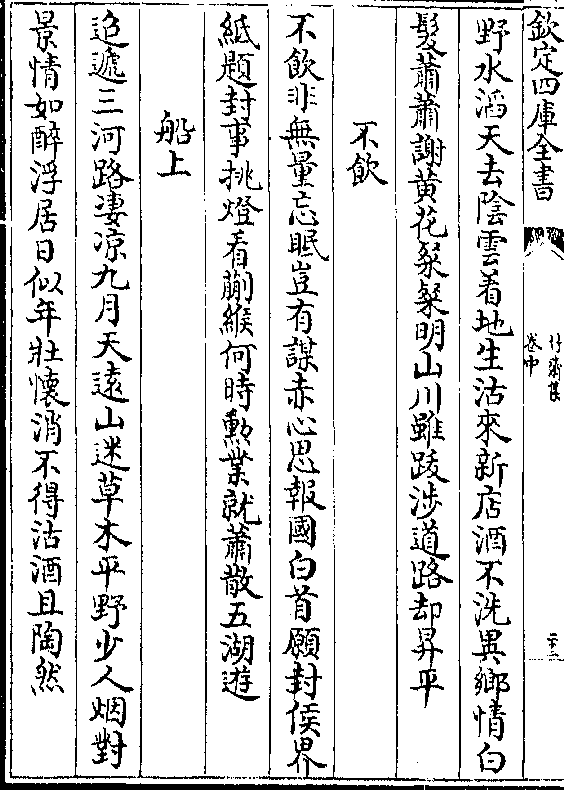 欽定四庫全書
竹齋集
卷中
二十二
野水滔天去陰雲着地生沽來新店酒不洗異鄉情白
髮蕭蕭謝黄花粲粲明山川雖跋涉道路却昇平
不飲
不飲非無量忘眠豈有謀赤心思報國白首願封侯界
紙題封事挑燈看蒯緱何時勲業就蕭散五湖遊
船上
迢遞三河路凄凉九月天逺山迷草木平野少人烟對
景情如醉浮居日似年壯懷消不得沽酒且陶然